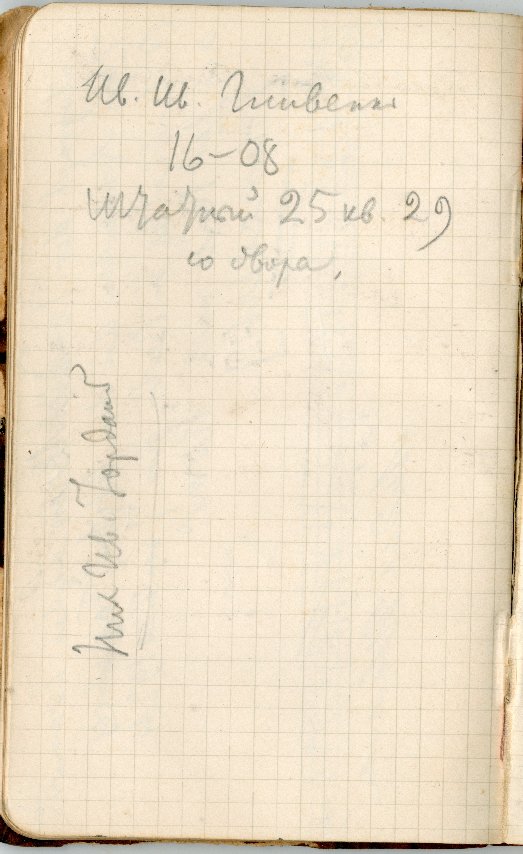 Ив. Ив. Гливенко
16-08
Штатный 25 кв. 29
со двора,
Ник Ив. Гордай